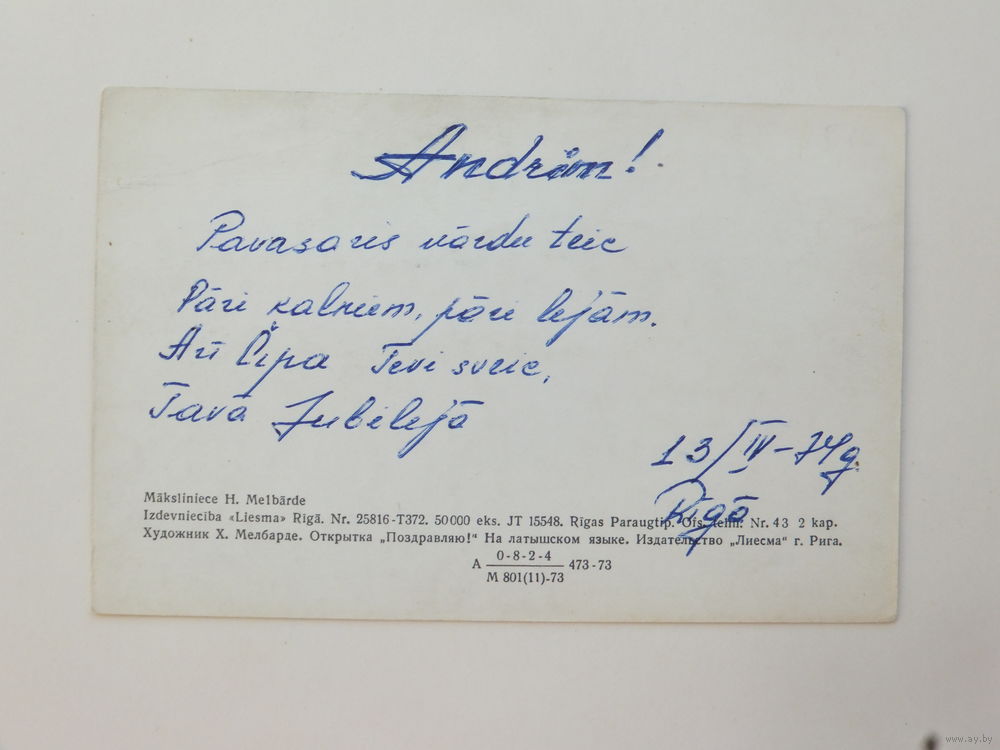 Andrim!
Pavasaris vārdu teic
Pāri kalniem, pāri lejām.
Arī Čipa Tevi sveic,
Tavā Jubilejā
13/IV-74g.
Rīgā
Māksliniece H. Melbārde
Izdevniecība «Liesma» Rīgā. Nr. 25816-T372. 50000 eks. JT 15548. Rīgas Paraugtip. Ofs. tehn. Nr. 43 2 kap.
Художник Х. Мелбарде. Открытка „Поздравляю!“ На латышском языке. Издательство „Лиесма“ г. Рига.
А 0-8-2-4 473-73
М 801(11)-73
www.ay.by